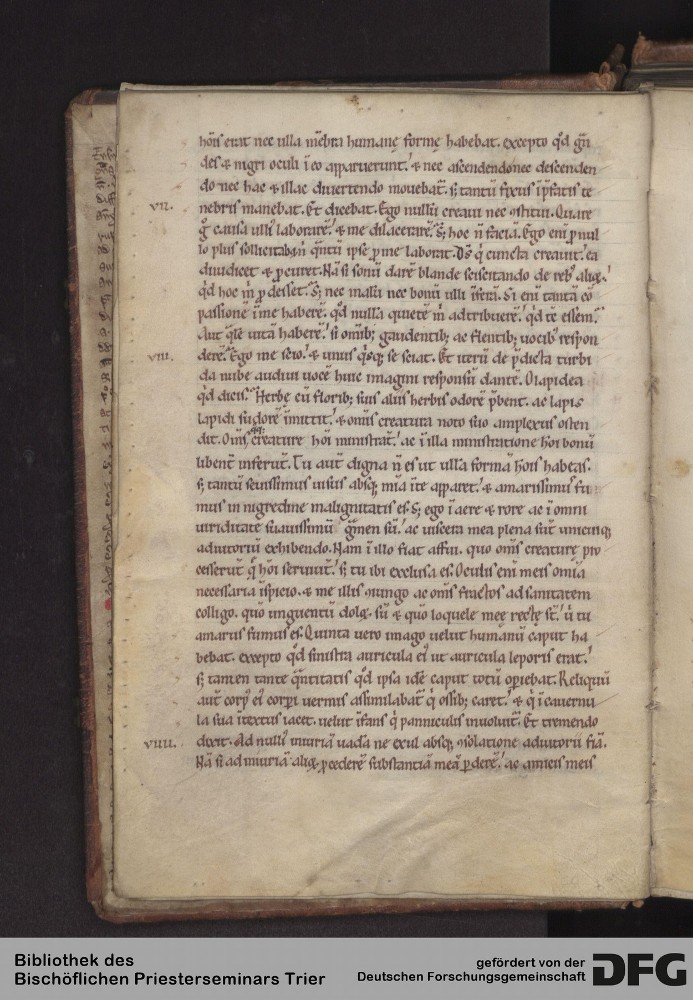 hōis erat nec ulla mēbra humane forme habebat. excepto qd̄ gn̄
des & nigri oculi ī eo apparuerunt. & nec ascendendo nec descenden
do nec hac & illac diuertendo mouebat̄. s; tantū fixus ip̄fatis te
vii. nebris manebat. Et dicebat. Ego nullū creaui nec ꝯstitui. Quare
g̊ causa ulliꝰ laborarē. & me dilacerarē. S; hoc n̄ faciā. Ego eni ꝓ nul
lo plus sollicitabor n̄ q̄ntū ipse ꝓ me laborat. Ds̄ q̇ cuncta creauit. ea
diiudicet & ꝓcuret. Nā si sonū darē blande sciscitando de rebꝰ aliqꝫ.
qd̄ hoc m̄ ꝓdesset. S; nec malū nec bonū ulli īferā. Si enī tantā cō
passionē ī me haberē. qd̄ nullā quietē m̄ adtribuerē. qd̄ tc̄ essem.
Aut q̄lē uitā haberē. si omīb; gaudentib; ac flentib; uocibꝰ respon
viii. derē. Ego me scio. & unus q̇sq; se sciat. Et iterū de p̄dicta turbi
da nube audiui uocē huic imagini responsū dantē. O lapidea
qd̄ dicis. Herbe cū florib; suis aliis herbis odorē p̄bent. ac lapis
lapidi sudorē īmittit. & omīs creatura noto suo amplexus osten
dit. Oms̄ qq; creature hōi ministrāt. ac ī illa ministratione hōi bonū
libent̄ inferūt. Tu aut̄ digna n̄ es ut ullā formā hōis habeas.
s; tantū seuissimus uisus absq; mīa ī te apparet. & amarissimꝰ fu
mus in nigredine malignitatis es. S; ego ī aere & rore ac ī omni
uiriditate suauissimū g̊men sū. ac uiscera mea plena sūt unicuiq;
adiutoriū exhibendo. Nam ī illo fiat affui. quo oms̄ creature pro
cesserūt q̄ hōi seruiūt. s; tu ibi exclusa es. Oculis enī meis omīa
necessaria īspicio. & me illis ꝯiungo ac oms̄ fractos ad sanitatem
colligo. quō unguentū doloꝝ sū & quō loquele meę rectę st̄. ū tu
amarus fumus es. Quinta uero imago uelut humanū caput ha
bebat. excepto qd̄ sinistra auricula ei ut auricula leporis erat.
s; tamen tante q̄ntitatis qd̄ ipsa idē caput totū opiebat. Reliquū
aut̄ corpꝰ eiꝰ corpi uermis assimilabat̄ q̇ ossib; caret. & q̇ ī cauernu
la sua ītextus iacet. uelut īfans q̇ panniculis inuoluit̄. Et tremendo
viiii. dixit. Ad nulliꝰ iniuriā uadā ne exul absq; ꝯsolatione adiutorii fiā.
Nā si ad iniuriā aliqꝫ ꝓcederē substantiā meā ꝑderē. ac amicis meis
Bibliothek des
Bischöflichen Priesterseminars Trier
gefördert von der
Deutschen Forschungsgemeinschaft
DFG